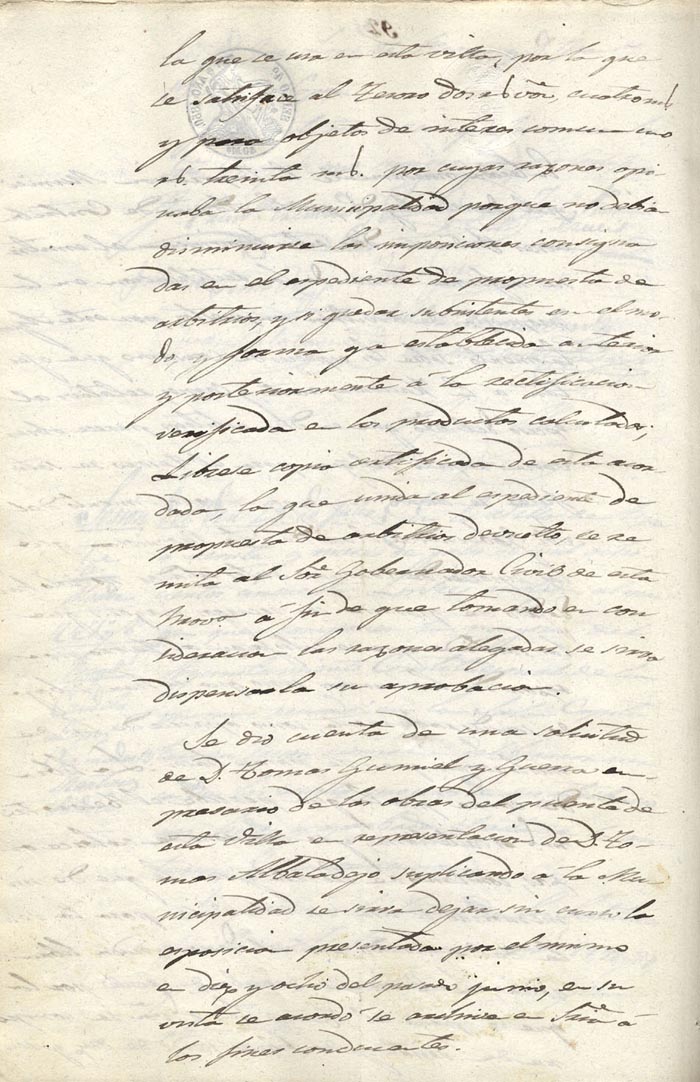 92
la que se usa en esta villa, por la que
se satisface al Tesoro dos r.s von. cuatro ms
y para objetos de interes comun uno
rs. treinta ms. por cuyas razones opi
naba la Municipalidad porque no debia
disminuirse las imposiciones consigna
das en el espediente de propuesta de
arbitrios, y si quedar subsistentes en el mo-
do y forma ya establecida anterior
y posteriormente á la rectificacion
verificada en los productos calculados;
Librese copia certificada de esta acor
dada, la que unida al espediente de
propuesta de arbitrios devuelto, se re
mita al Sor. Gobernador Civil de esta
Prova á fin de que tomando en con
sideracion las razones alegadas se sirva
dispensarla su aprobacion.
Se dio cuenta de una solicitud
de D. Tomas Gumiel y Guerra em-
presario de las obras del puente de
esta Villa en representacion de D. To-
mas Albaladejo suplicando á la Mu
nicipalidad se sirva dejar sin curso la
esposicion presentada por el mismo
en diez y ocho del pasado junio, en su
vista se acordo se archive en Sria á
los fines conducentes.